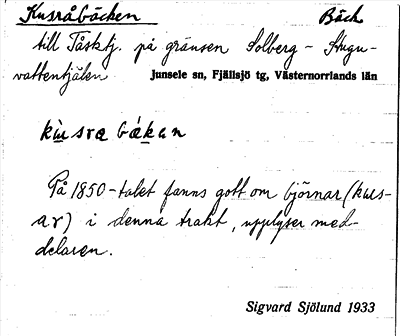 Kusråbäcken Bäck
till Tåsktj. på gränsen Solberg – Stugu-
vattentjälen Junsele sn, Fjällsjö tg, Västernorrlands län
kùsra bækan
På 1850-talet fanns gott om björnar (kus-
ar) i denna trakt, upplyser med-
delaren.
Sigvard Sjölund 1933